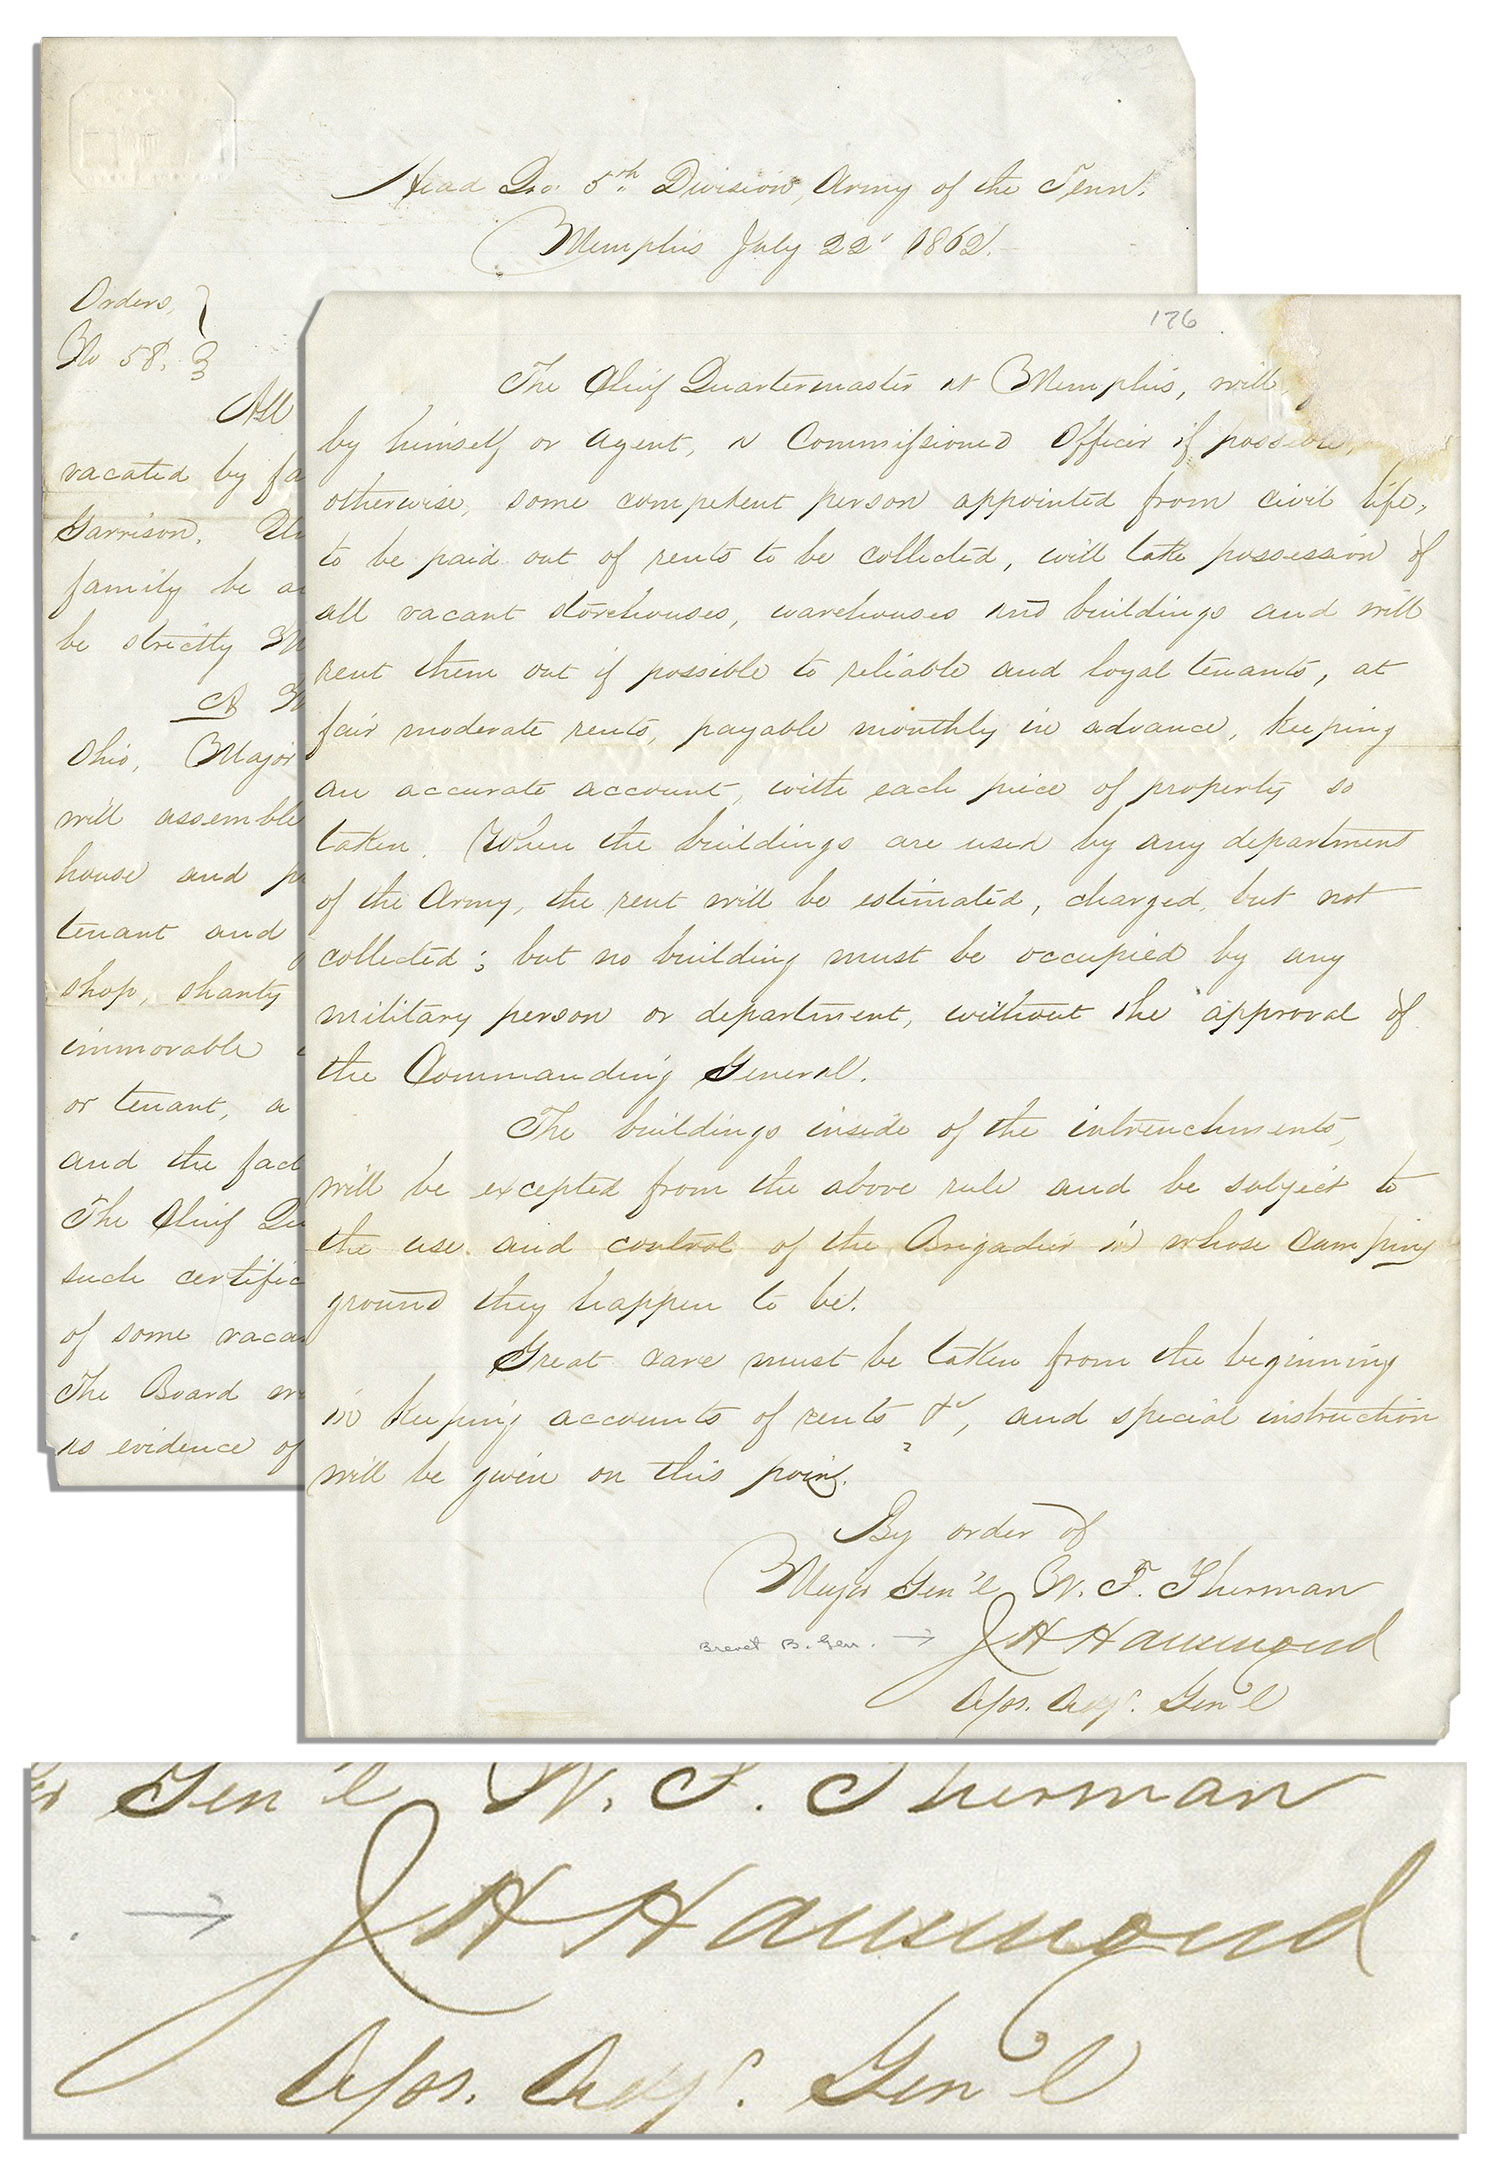 Head Qrs. 5th Division, Army of the Tenn.
Memphis July 22d 1862.
Orders,
No 58.
All
vacated by fa
Garrison. Un
family be a
be strictly
A
Ohio, Major
will assemble
house and p
tenant and
shop, shanty
immovable
or tenant, a
and the fact
The Chief Qu
such certific
of some vaca
The Board w
as evidence of
176
The Chief Quartermaster at Memphis, will
by himself or agent, a Commissioned Officer if possible,
otherwise, some competent person appointed from civil life,
to be paid out of rents to be collected, will take possession of
all vacant storehouses, warehouses and buildings and will
rent them out if possible to reliable and loyal tenants, at
fair moderate rents, payable monthly in advance, keeping
an accurate account, with each piece of property so
taken. When the buildings are used by any department
of the Army, the rent will be estimated, charged, but not
collected; but no building must be occupied by any
military person or department, without the approval of
the Commanding General.
The buildings inside of the intrenchments,
will be excepted from the above rule and be subject to
the use and control of the Brigadier in whose camping
ground they happen to be.
Great care must be taken from the beginning
in keeping accounts of rents &c, and special instruction
will be given on this point.
By order of
Major Gen'l W. T. Sherman
Brevet B. Gen. → J H Hammond
Ass. Adjt. Gen'l
Gen'l W. T. Sherman
→ J H Hammond
Ass. Adjt. Gen'l